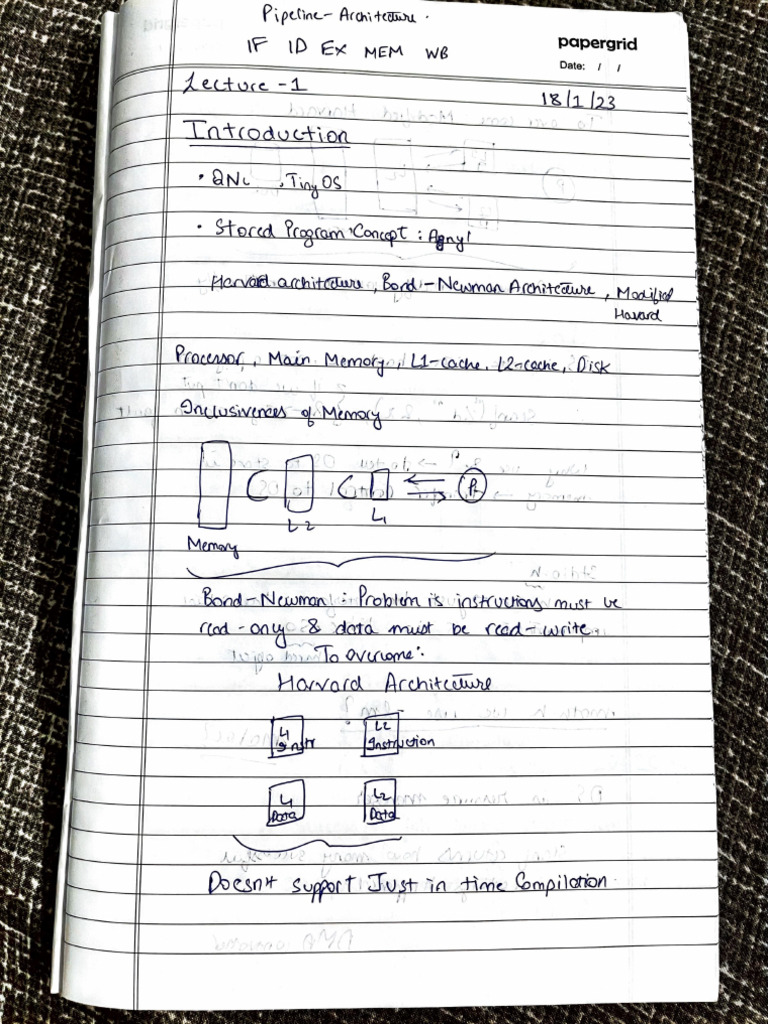 Pipeline-Architecture.
IF ID EX MEM WB
papergrid
Date: / /
Lecture-1
18/1/23
Introduction
• , TinyOS
• Stored Program Concept :
Harvard architecture, Bond-Newman Architecture, Modified
Havard
Processor, Main Memory, L1-cache, L2-cache, Disk
Inclusiveness of Memory
L2
L1
Memory
Bond-Newman : Problem is instructions must be
read-only & data must be read-write.
To overcome:
Harvard Architecture
L1 L2
Instr Instruction
L1 L2
Data Data
Doesn't support Just in time Compilation.